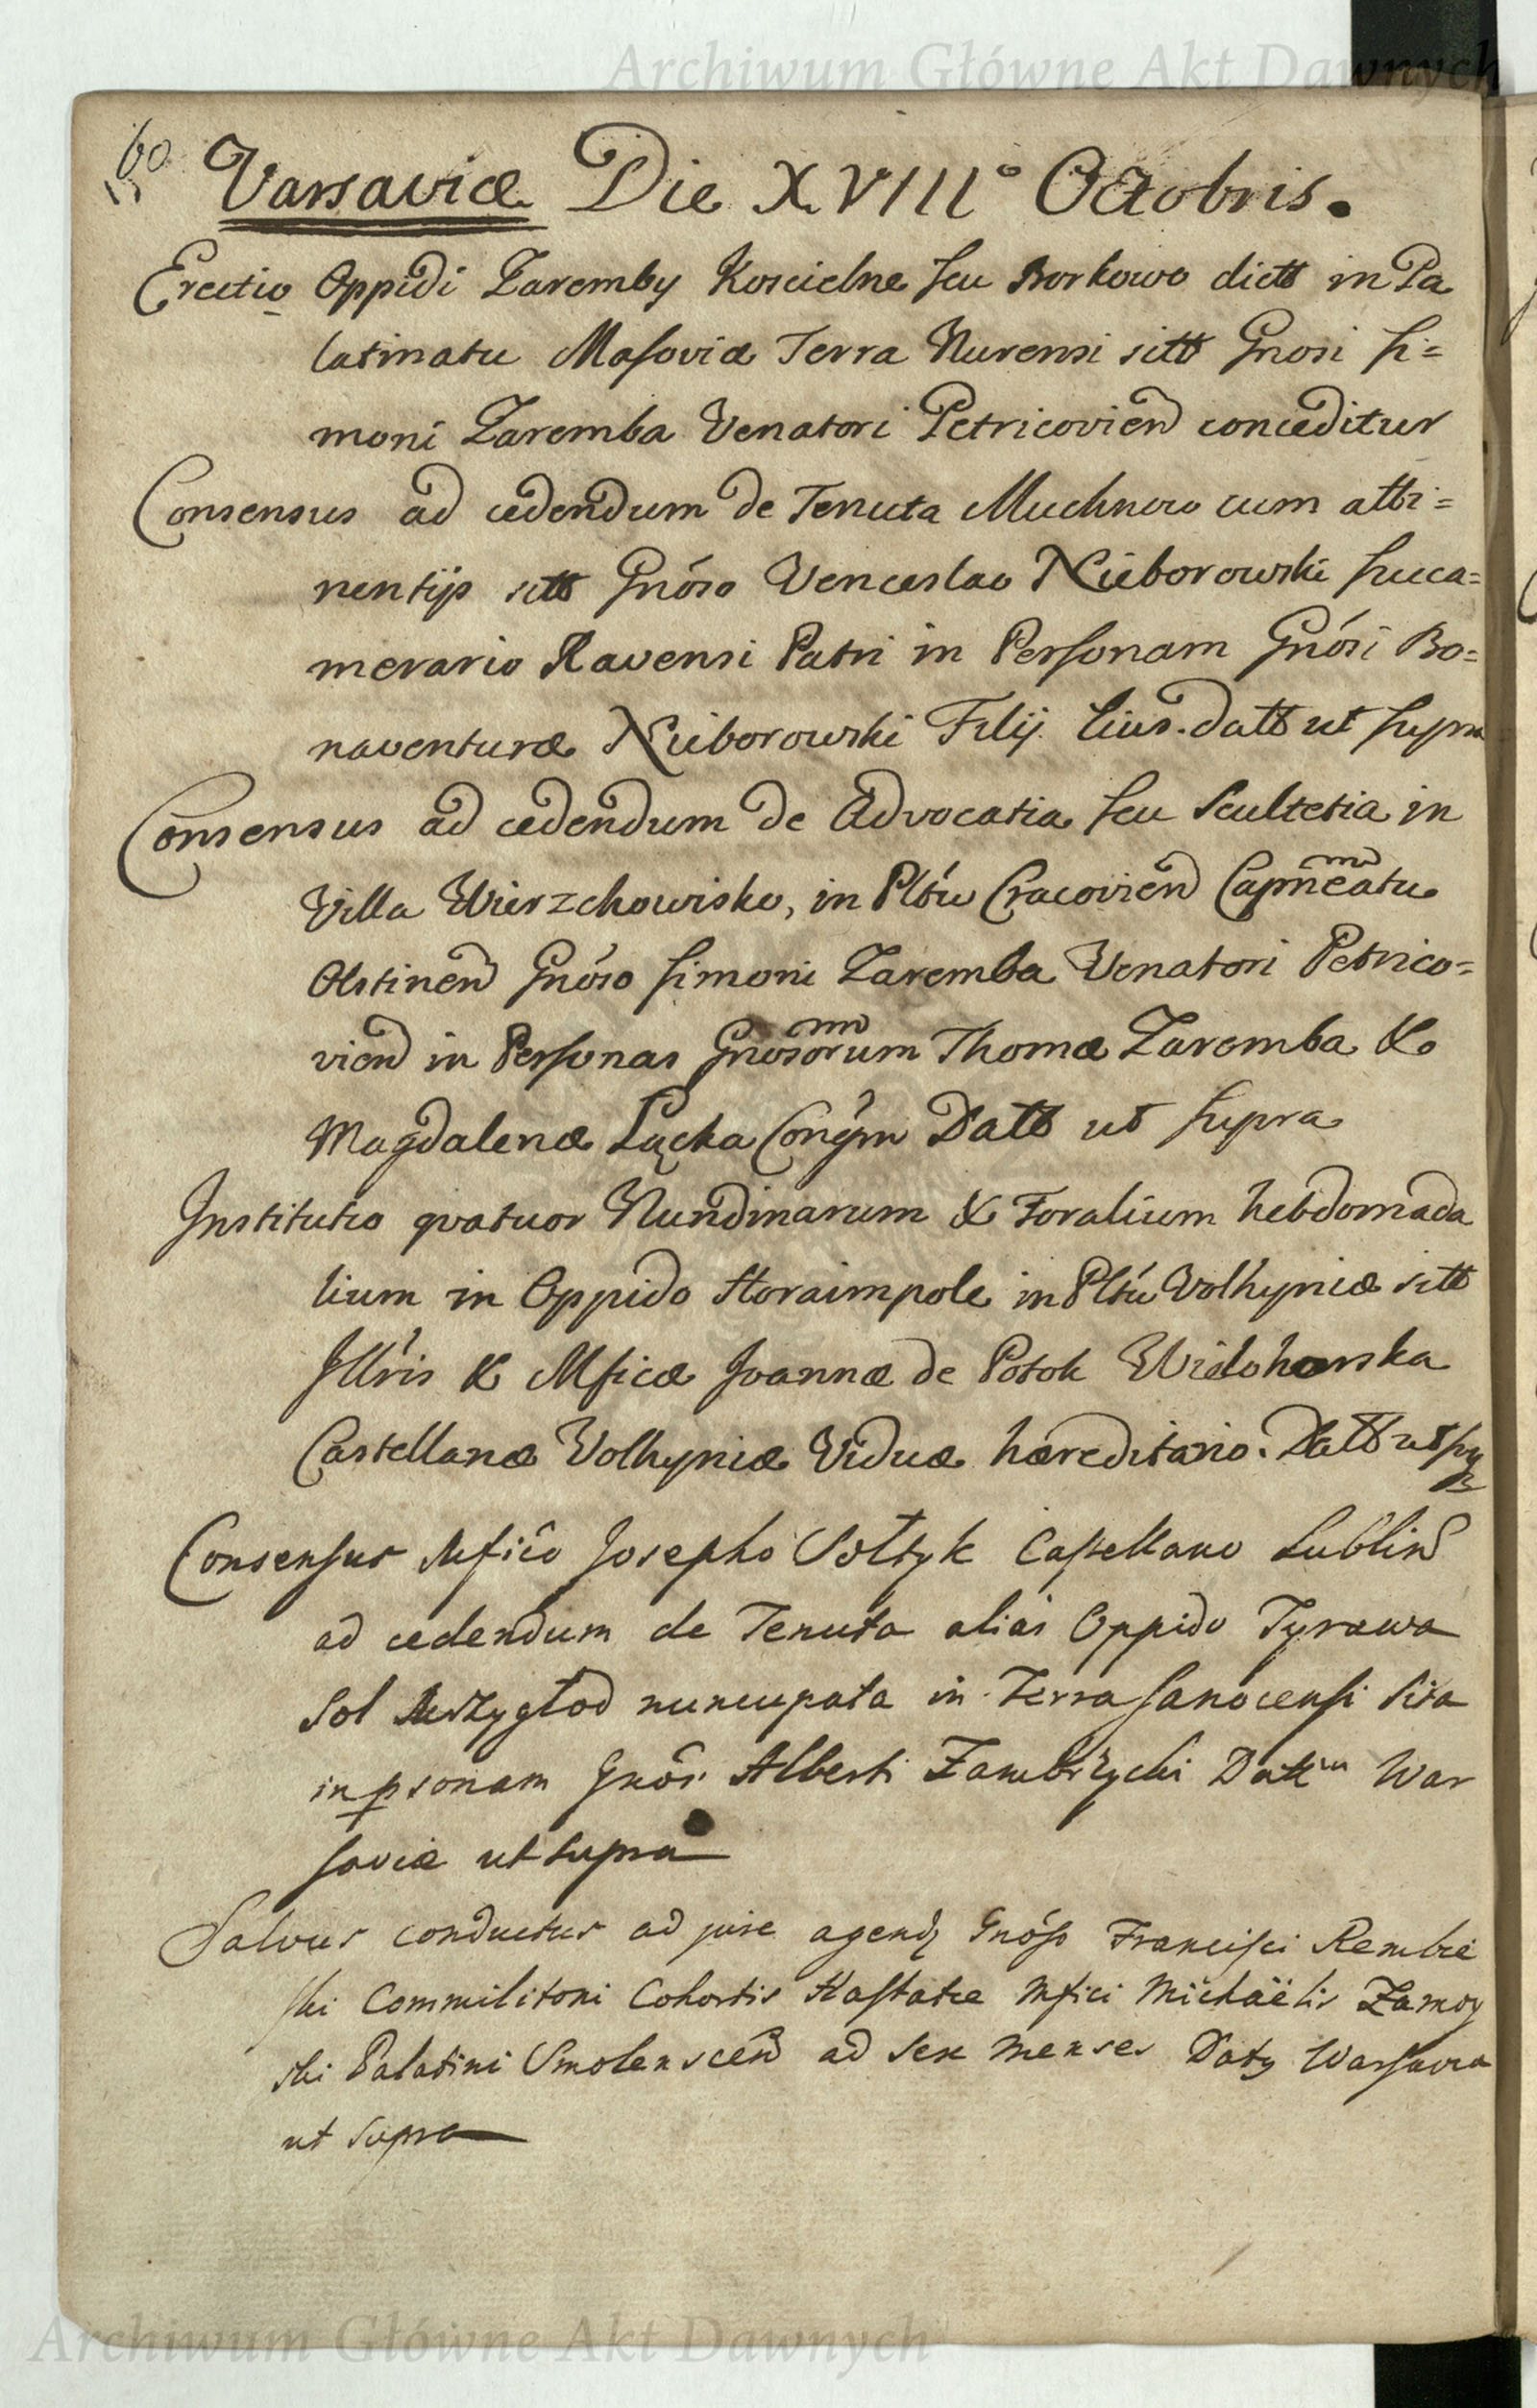 Archiwum Główne Akt Dawnych
60
Varsaviæ Die XVIIIº Octobris.
Erectio Oppidi Zaremby Koscielne seu Borkowo dictt in Pa
latinatu Masoviæ Terra Nurensi sitt Gnosi Si=
moni Zaremba Venatori Petricovien conceditur
Consensus ad cedendum de Tenuta Muchnow cum atti=
nentijs sitt Gnóso Venceslao Nieborowski Succa=
merario Ravensi Patri in Personam Gnósi Bo=
naventuræ Nieborowski Filij Eius. datt ut supra
Consensus ad cedendum de Advocatia seu Scultetia in
Villa Wierzchowisko, in Pltú Cracovien Capneatu
Olstinen Gnóso Simoni Zaremba Venatori Petrico=
vien in Personas Gnosorum Thomæ Zaremba &
Magdalenæ Łącka Conğm Datt ut supra
Institutio qvatuor Nundinarum & Foralium hebdomada
lium in Oppido Horaimpole in Pltú Volhyniæ sitt
Jllris & Mficæ Joannæ de Potok Wielohorska
Castellanæ Volhyniæ Viduæ hæreditario. Datt ut sup
Consensus Mficô Josepho Sołtyk Castellano Lublin
ad cedendum de Tenuta alias Oppido Tyrawa
Sol Mrzygłod nuncupata in Terra Sanocensi sita
in psonam Gnôs. Alberti Zambrzycki Dattm War
saviæ ut supra
Salvus conductus ad jure agend Gnóso Francisci Rembie
ski Commilitoni Cohortis Hastatæ Mfici Michaëlis Zamoy
ski Palatini Smolenscen ad sex menses Datt Warsavia
ut supra
Archiwum Główne Akt Dawnych